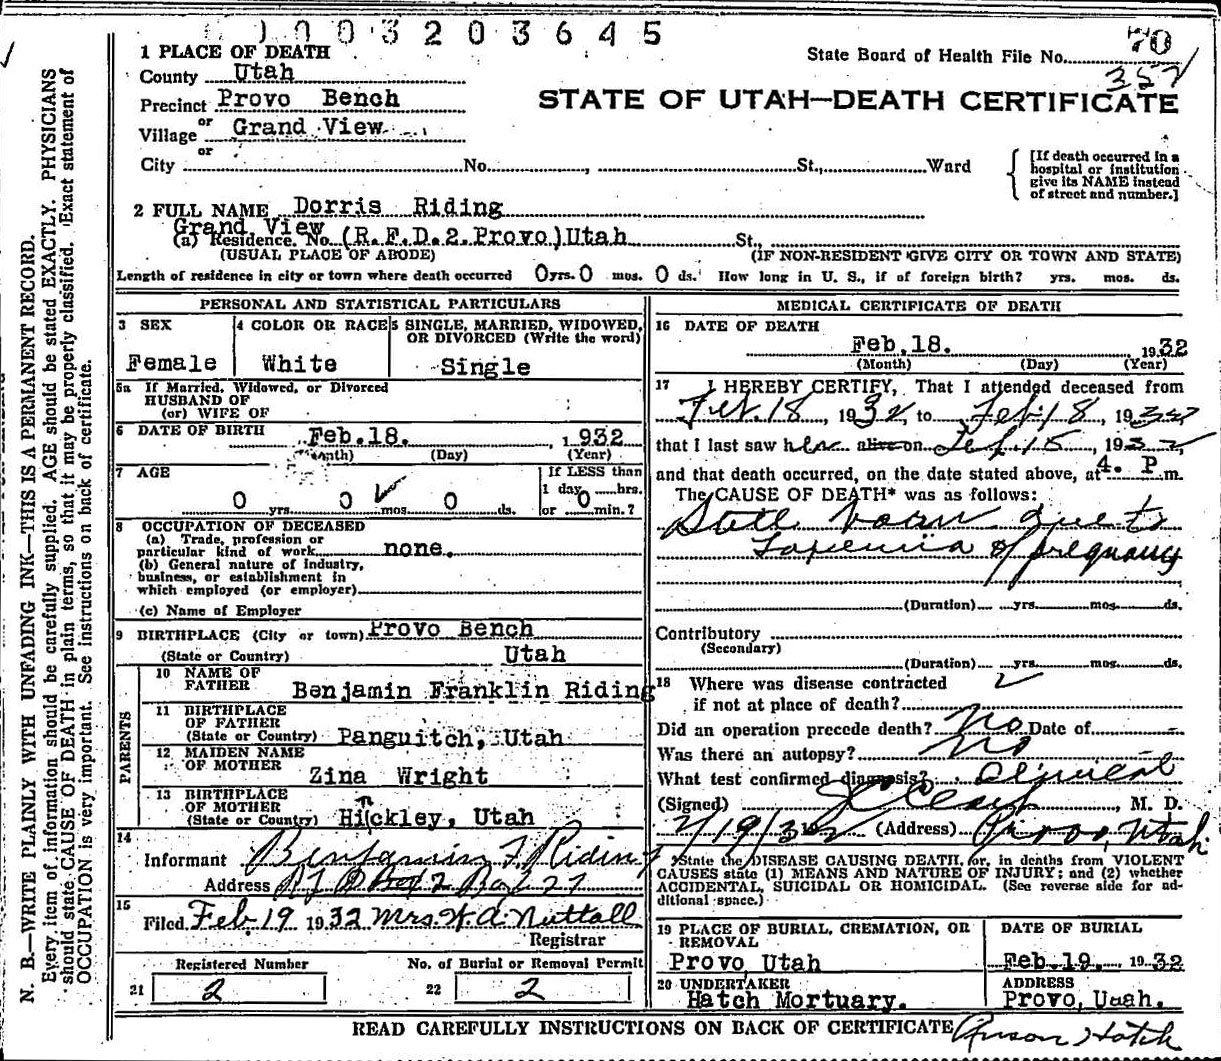 0003203645
70
1 PLACE OF DEATH
State Board of Health File No.
352
County Utah
Precinct Provo Bench
STATE OF UTAH—DEATH CERTIFICATE
or
Village Grand View
or
City No. , St., Ward
[If death occurred in a hospital or institution give its NAME instead of street and number.]
2 FULL NAME Dorris Riding
Grand View
(a) Residence. No. (R.F.D.2.Provo)Utah St.,
(USUAL PLACE OF ABODE) (IF NON-RESIDENT GIVE CITY OR TOWN AND STATE)
Length of residence in city or town where death occurred 0 yrs. 0 mos. 0 ds. How long in U. S., if of foreign birth? yrs. mos. ds.
PERSONAL AND STATISTICAL PARTICULARS
3 SEX 4 COLOR OR RACE 5 SINGLE, MARRIED, WIDOWED, OR DIVORCED (Write the word)
Female White Single
5a If Married, Widowed, or Divorced
HUSBAND OF
(or) WIFE OF
6 DATE OF BIRTH Feb.18. , 1932
(Month) (Day) (Year)
7 AGE If LESS than
0 yrs. 0 mos. 0 ds. 1 day hrs.
or 0 min.?
8 OCCUPATION OF DECEASED
(a) Trade, profession or
particular kind of work none.
(b) General nature of industry,
business, or establishment in
which employed (or employer)
(c) Name of Employer
9 BIRTHPLACE (City or town) Provo Bench
(State or Country) Utah
PARENTS
10 NAME OF
FATHER Benjamin Franklin Riding
11 BIRTHPLACE
OF FATHER
(State or Country) Panguitch, Utah
12 MAIDEN NAME
OF MOTHER Zina Wright
13 BIRTHPLACE
OF MOTHER
(State or Country) Hickley, Utah
14
Informant Benjamin F. Riding
Address 2 Box 27
15
Filed Feb 19 1932 Mrs. W. A. Nuttall
Registrar
Registered Number No. of Burial or Removal Permit
21 2 22 2
MEDICAL CERTIFICATE OF DEATH
16 DATE OF DEATH
Feb.18. 1932
(Month) (Day) (Year)
17 I HEREBY CERTIFY, That I attended deceased from
Feb. 18, 1932, to Feb. 18, 1932
that I last saw her alive on 15, 1932
and that death occurred, on the date stated above, at 4. P m.
The CAUSE OF DEATH* was as follows:
Still born due to
Toxemia of pregnancy
(Duration) yrs. mos. ds.
Contributory
(Secondary)
(Duration) yrs. mos. ds.
18 Where was disease contracted
if not at place of death?
Did an operation precede death? No Date of
Was there an autopsy? No
What test confirmed diagnosis? Clinical
(Signed) , M. D.
2/19/32 (Address) Provo, Utah
*State the DISEASE CAUSING DEATH, or, in deaths from VIOLENT
CAUSES state (1) MEANS AND NATURE OF INJURY; and (2) whether
ACCIDENTAL, SUICIDAL OR HOMICIDAL. (See reverse side for ad-
ditional space.)
19 PLACE OF BURIAL, CREMATION, OR REMOVAL DATE OF BURIAL
Provo, Utah Feb.19. 1932
20 UNDERTAKER ADDRESS
Hatch Mortuary. Provo, Utah.
READ CAREFULLY INSTRUCTIONS ON BACK OF CERTIFICATE Anson Hatch
N. B.—WRITE PLAINLY WITH UNFADING INK—THIS IS A PERMANENT RECORD.
Every item of information should be carefully supplied. AGE should be stated EXACTLY. PHYSICIANS
should state CAUSE OF DEATH in plain terms, so that it may be properly classified. Exact statement of
OCCUPATION is very important. See instructions on back of certificate.